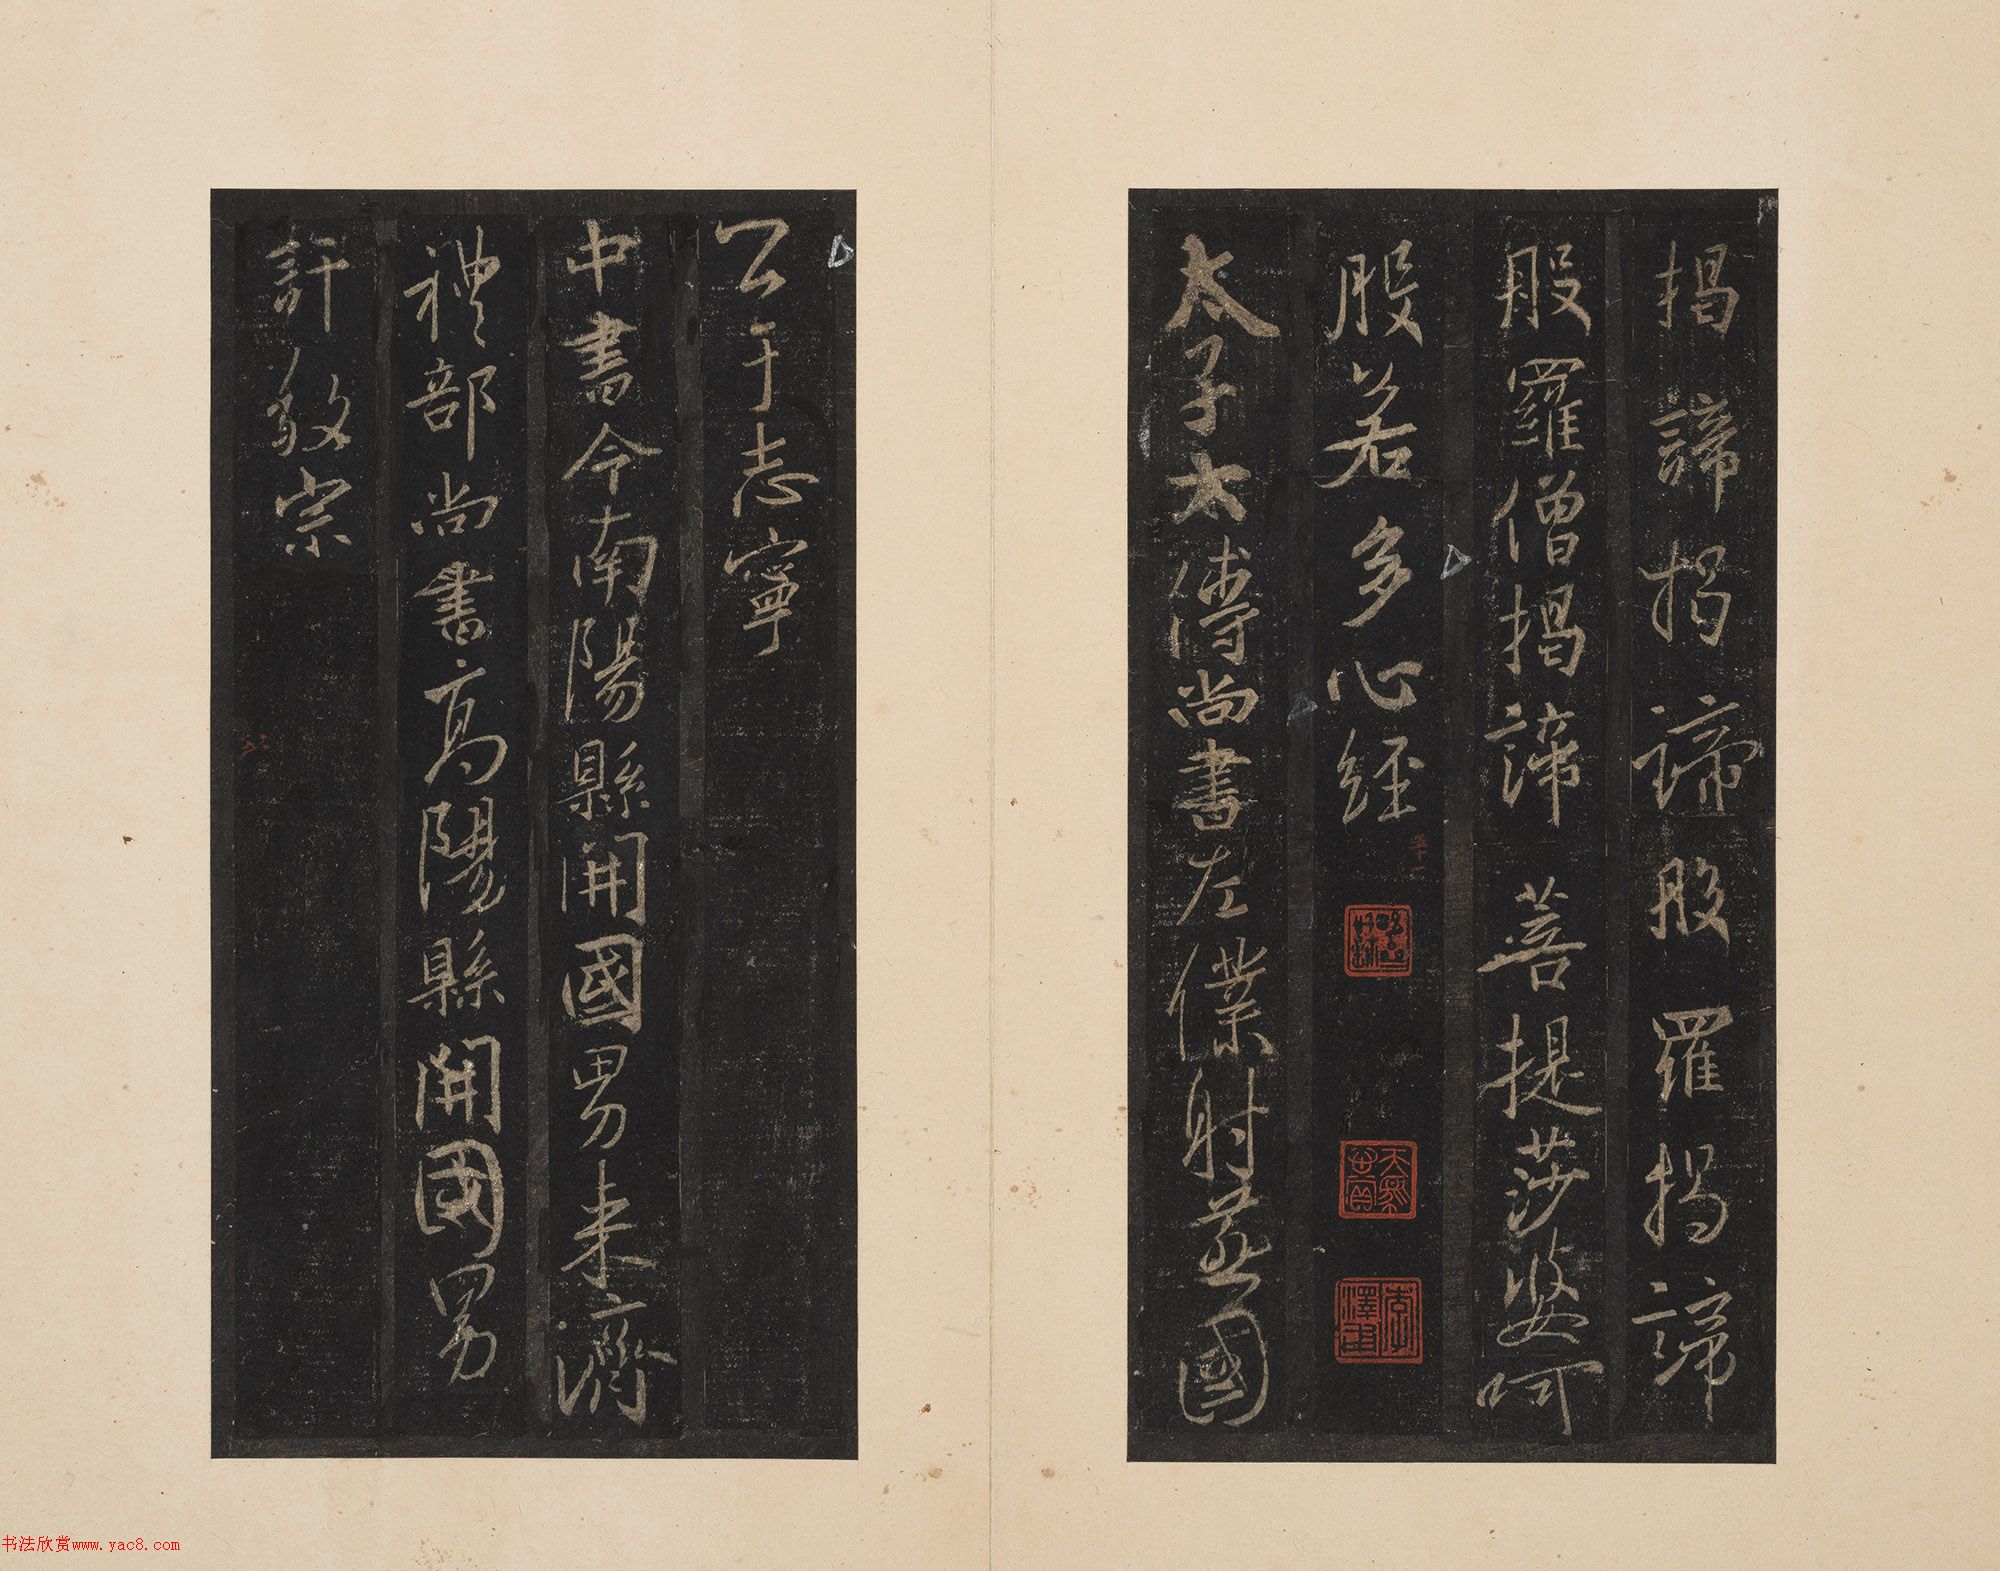 揭諦揭諦般羅揭諦
般羅僧揭諦菩提莎婆呵
般若多心經
太子太傅尚書左僕射燕國
公于志寧
中書令南陽縣開國男来濟
禮部尚書高陽縣開國男
許敬宗
书法欣赏www.yac8.com